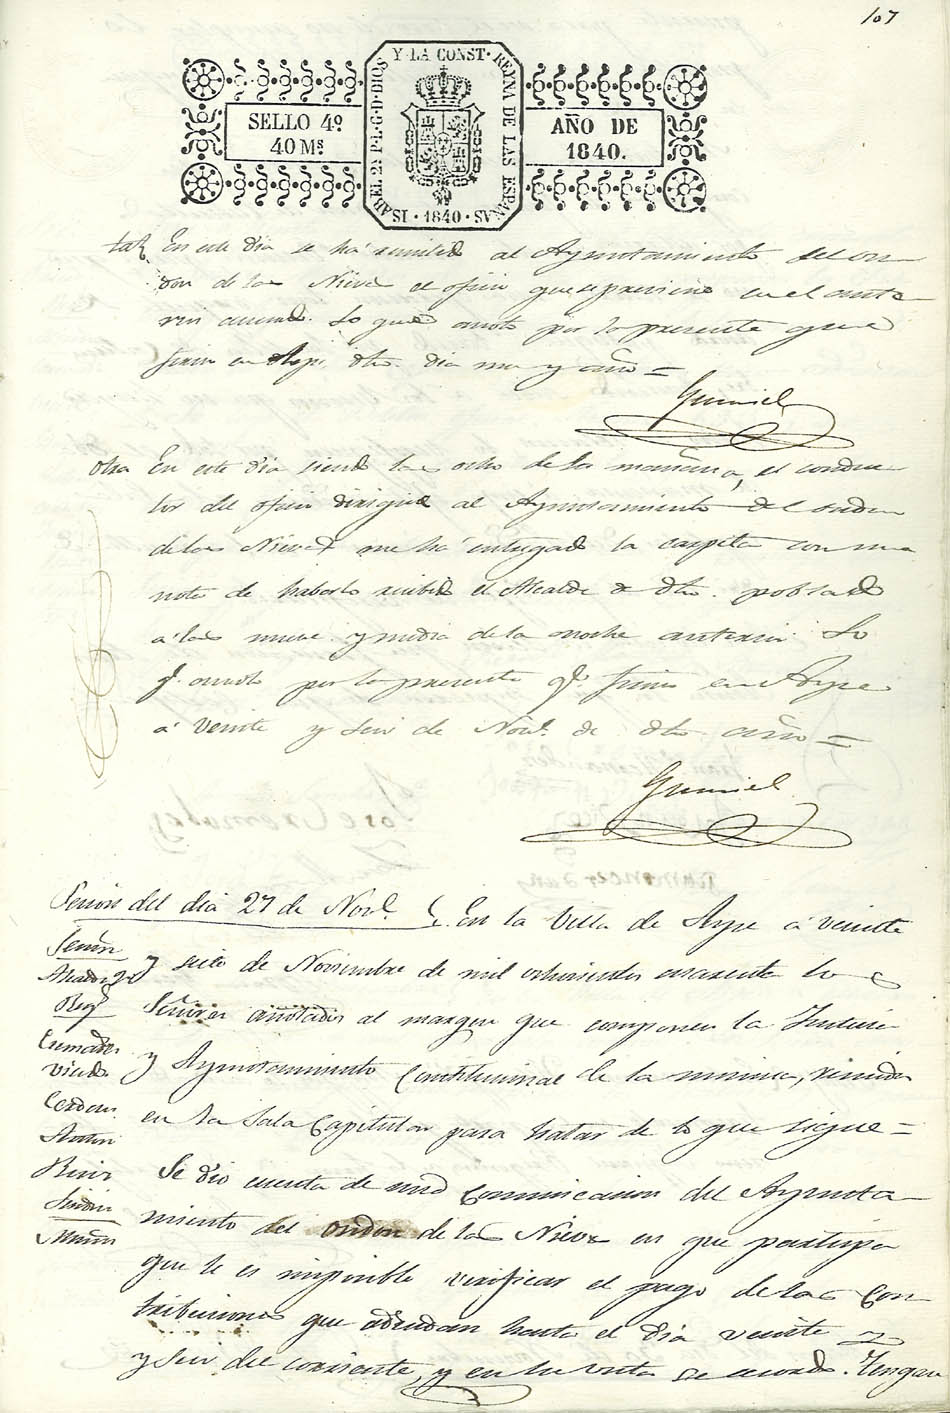 107
SELLO 4º
40 Ms
ISABEL 2ª P.L.G.D.DIOS Y LA CONST. REYNA DE LAS ESPAÑAS
1840
AÑO DE
1840.
En este dia se há remitido al Ayuntamiento del on-
don de las Nieves el oficio que se previene en el ante-
rior acuerdo. Lo que anoto por la presente que
firmo en Aspe, dho. dia mes y año =
Gumiel
otra En este dia siendo las ocho de la mañana, el conduc-
tor del oficio dirigido al Ayuntamiento del ondon
de las Nieves me há entregado la carpeta con una
nota de haberlo recibido el Alcalde de dho. poblado
á las nueve y media de la noche anterior. Lo
q. anoto por la presente q. firmo en Aspe
á veinte y seis de Nove. de dho. año =
Gumiel
Sesion del dia 27 de Nove.
Señores
Cremades
Cerdan
Sindico
En la Villa de Aspe á veinte
y siete de Noviembre de mil ochocientos cuarenta los
Señores anotados al margen que componen la Justicia
y Ayuntamiento Constitucional de la misma, reunidos
en la Sala Capitular para tratar de lo que sigue =
Se dio cuenta de una comunicacion del Ayunta-
miento del ondon de las Nieves en que participa
que le es imposible verificar el pago de las Con-
tribuciones que adeudan hasta el dia veinte
y seis del corriente, y en su vista se acordó: Tengan